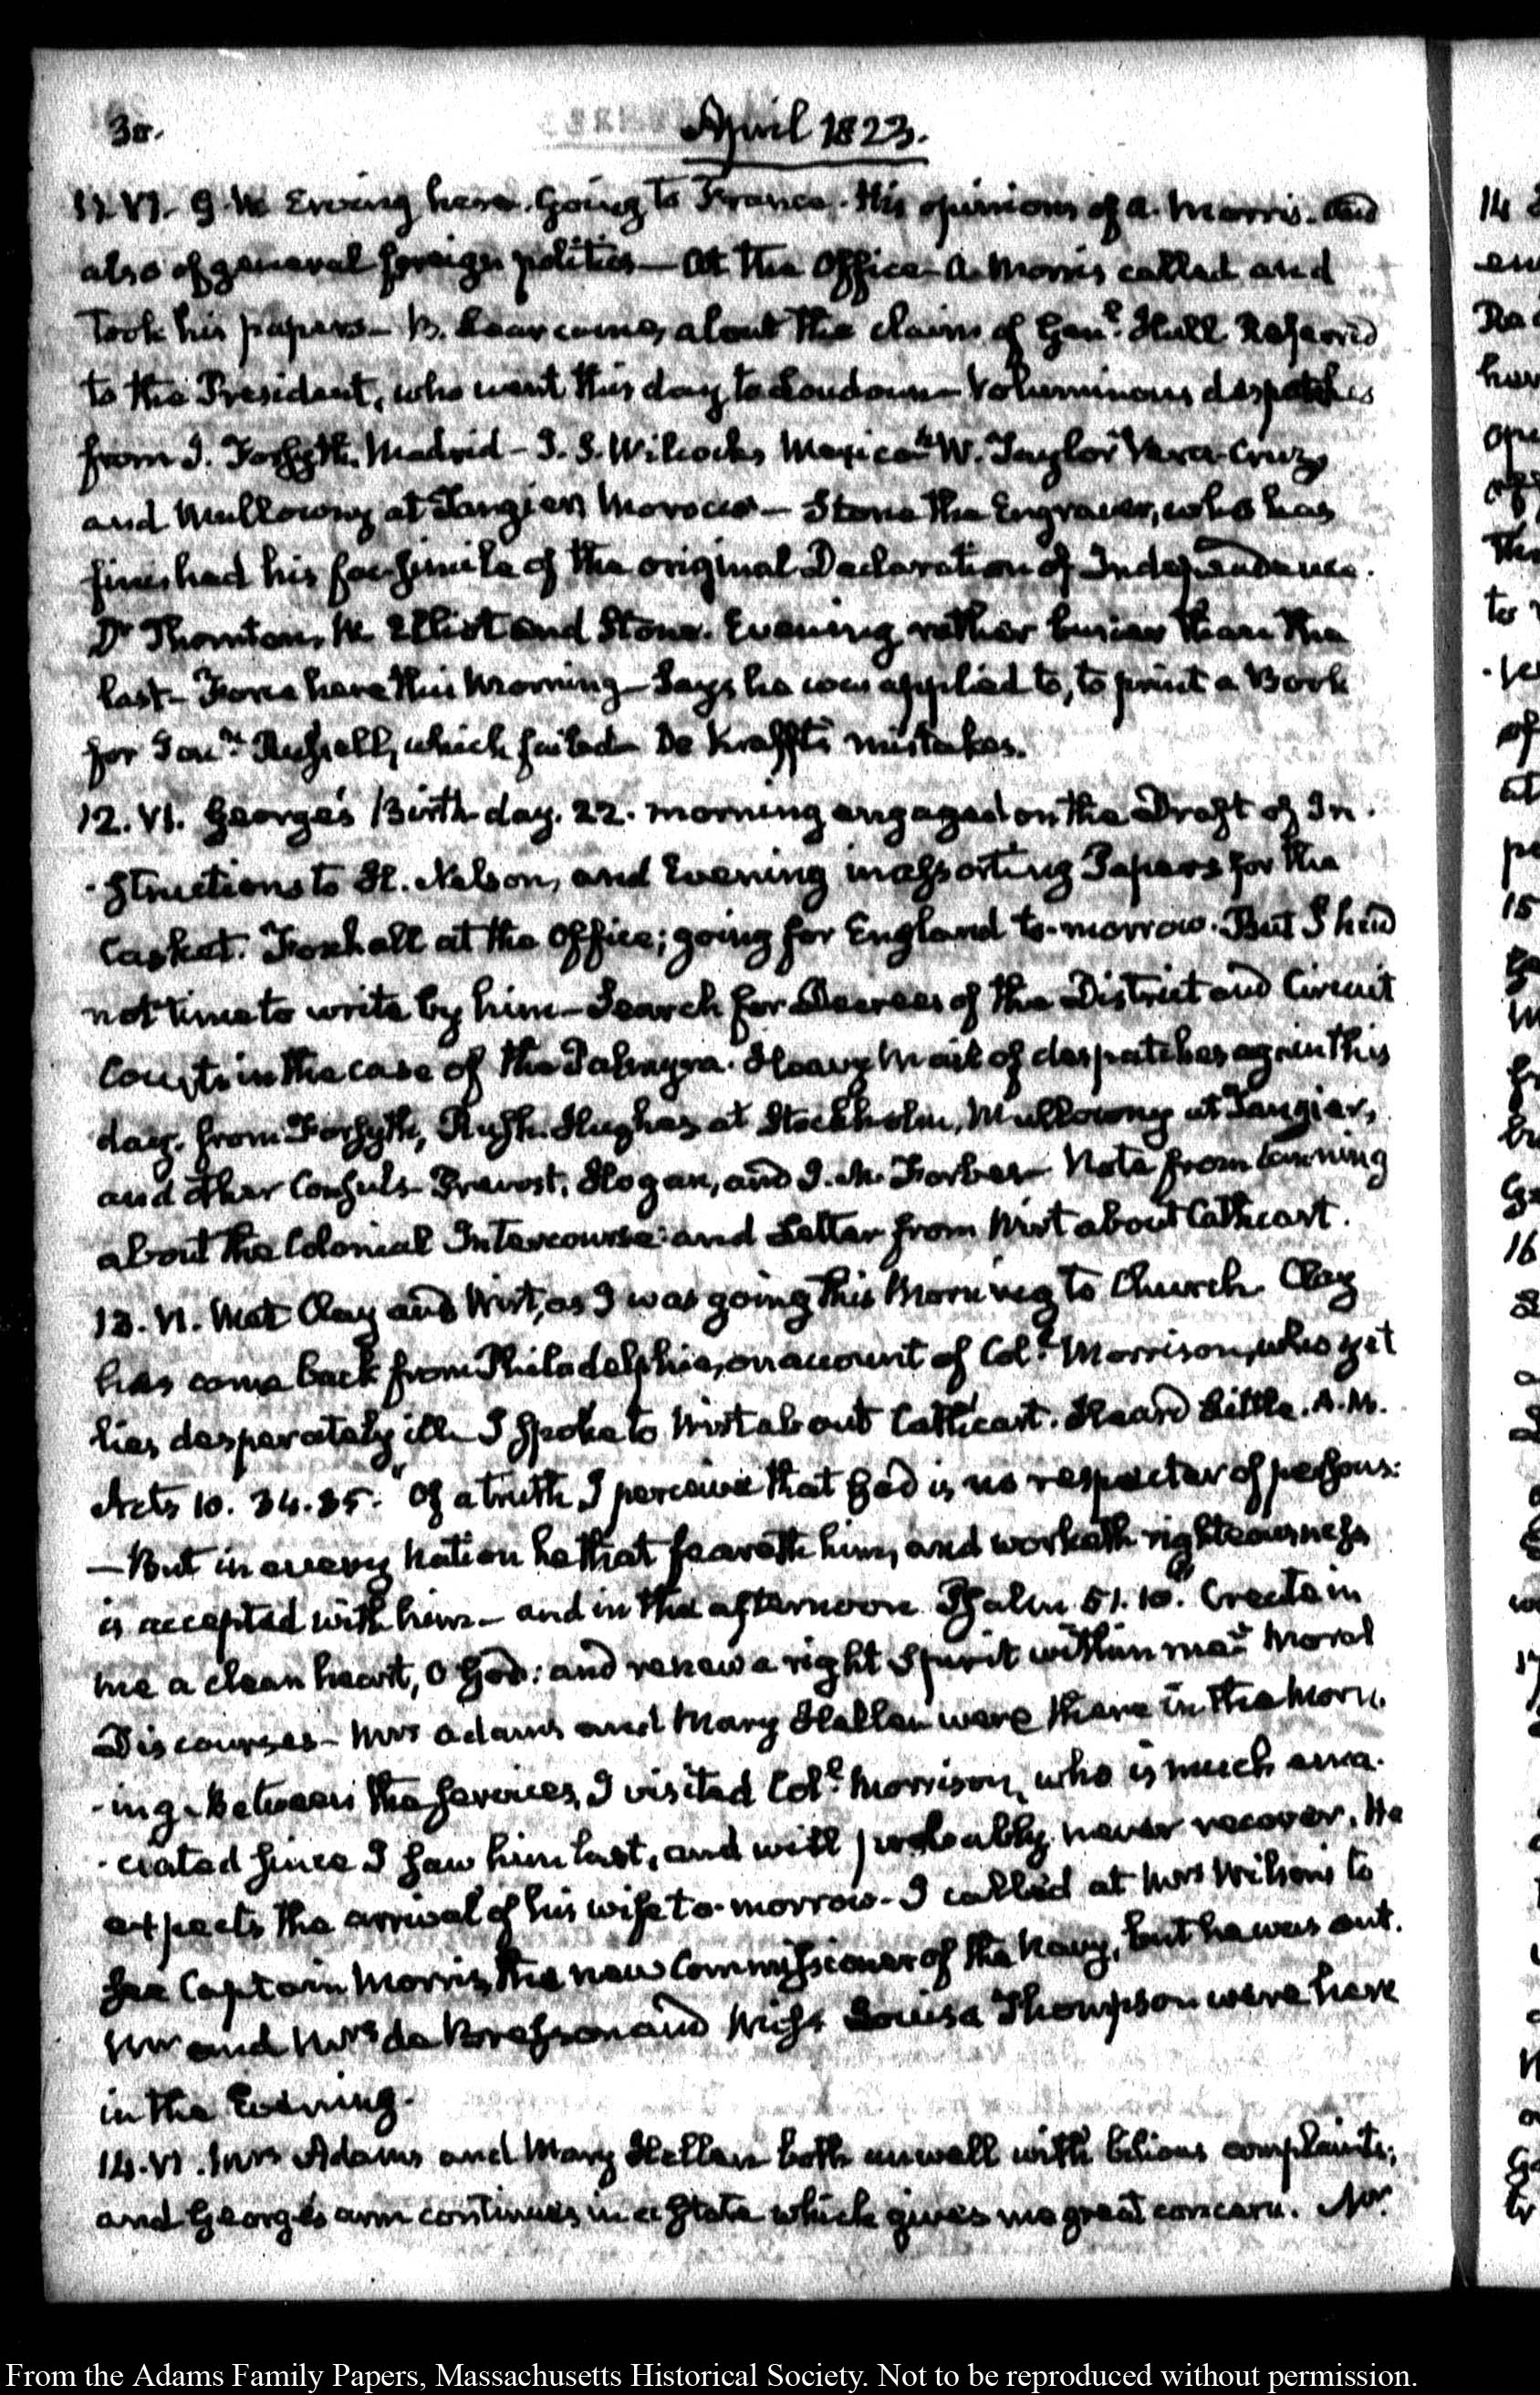 30.
April 1823.
11. VI. G. W. Erving here. Going to France. His opinions of A. Morris. and
also of general foreign politics — At the Office A. Morris called and
took his papers — B. Lear came, about the claim of Genl. Hull. Referred
to the President, who went this day to Loudoun — Voluminous despatches
from J. Forsyth, Madrid — J. S. Wilcocks Mexico W. Taylor Vera-Cruz,
and Mullowny at Tangier, Morocco — Stone the Engraver, who has
finished his fac-simile of the original Declaration of Independence.
Dr. Thornton, W. Elliot and Stone. Evening rather busier than the
last — Force here this Morning — Says he was applied to, to print a Book
for Jonn. Russell, which failed — De Krafft's mistakes.
12. VI. George's Birth-day. 22. morning engaged on the Draft of In-
-structions to H. Nelson, and Evening in assorting Papers for the
Casket. Foxhall at the Office; going for England to-morrow. But I had
not time to write by him — Search for Decrees of the District and Circuit
Courts in the case of the Palmyra. Heavy Mail of despatches again this
day, from Forsyth, Rush. Hughes at Stockholm, Mullowny at Tangier,
and other Consuls — Prevost, Hogan, and J. M. Forbes — Note from Canning
about the Colonial Intercourse: and Letter from Wirt about Cathcart.
13. VI. Met Clay and Wirt, as I was going this Morning to Church. Clay
has come back from Philadelphia, on account of Coll. Morrison, who yet
lies desperately ill — I spoke to Wirt about Cathcart. Heard Little. A.M.
Acts 10. 34.35. "Of a truth, I perceive that God is no respecter of persons:
— But in every Nation he that feareth him, and worketh righteousness
is accepted with him — and in the afternoon Psalm 51. 10. "Create in
me a clean heart, O God: and renew a right Spirit within me" Moral
Discourses — Mrs Adams and Mary Hellen were there in the Morn-
-ing. Between the services, I visited Coll. Morrison, who is much ema-
-ciated since I saw him last, and will probably never recover. He
expects the arrival of his wife to-morrow — I called at Mrs Wilson's to
see Captain Morris, the new Commissioner of the Navy, but he was out.
Mr and Mrs de Bresson and Miss Louisa Thompson were here
in the Evening.
14. VI. Mrs Adams and Mary Hellen both unwell with bilious complaints;
and George's arm continues in a State which gives me great concern. Mr.
From the Adams Family Papers, Massachusetts Historical Society. Not to be reproduced without permission.